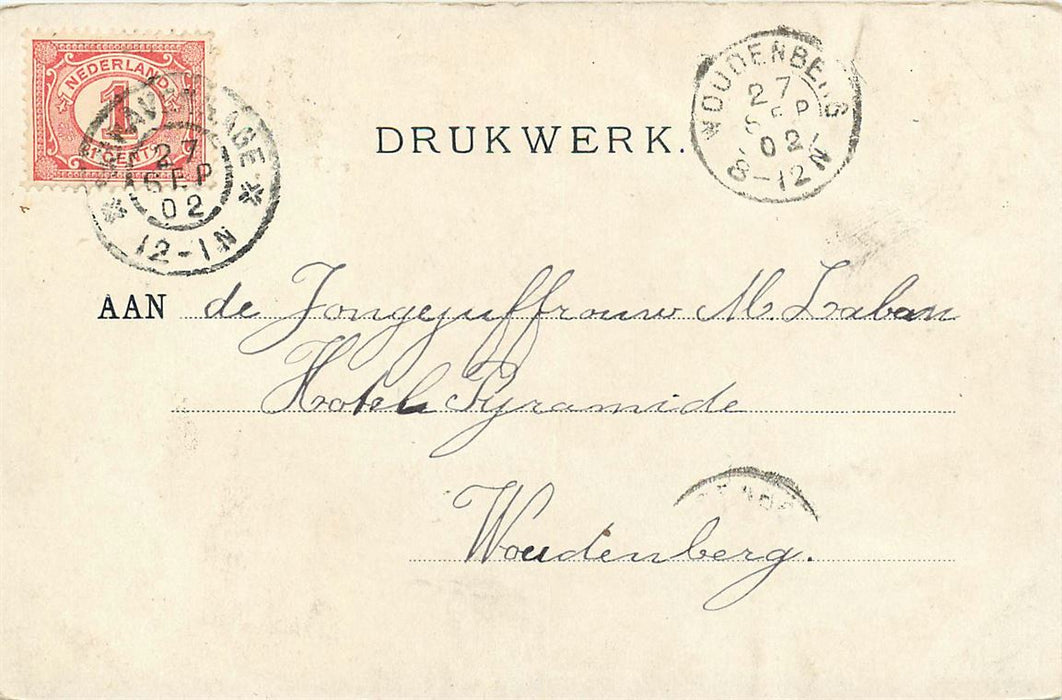 NEDERLAND
1
1 CENT
'S-GRAVENHAGE
27
SEP
02
12-1N
DRUKWERK.
WOUDENBERG
27
SEP
02
8-12N
AAN de Jongejuffrouw M. Laban
Hotel Pyramide
Woudenberg.